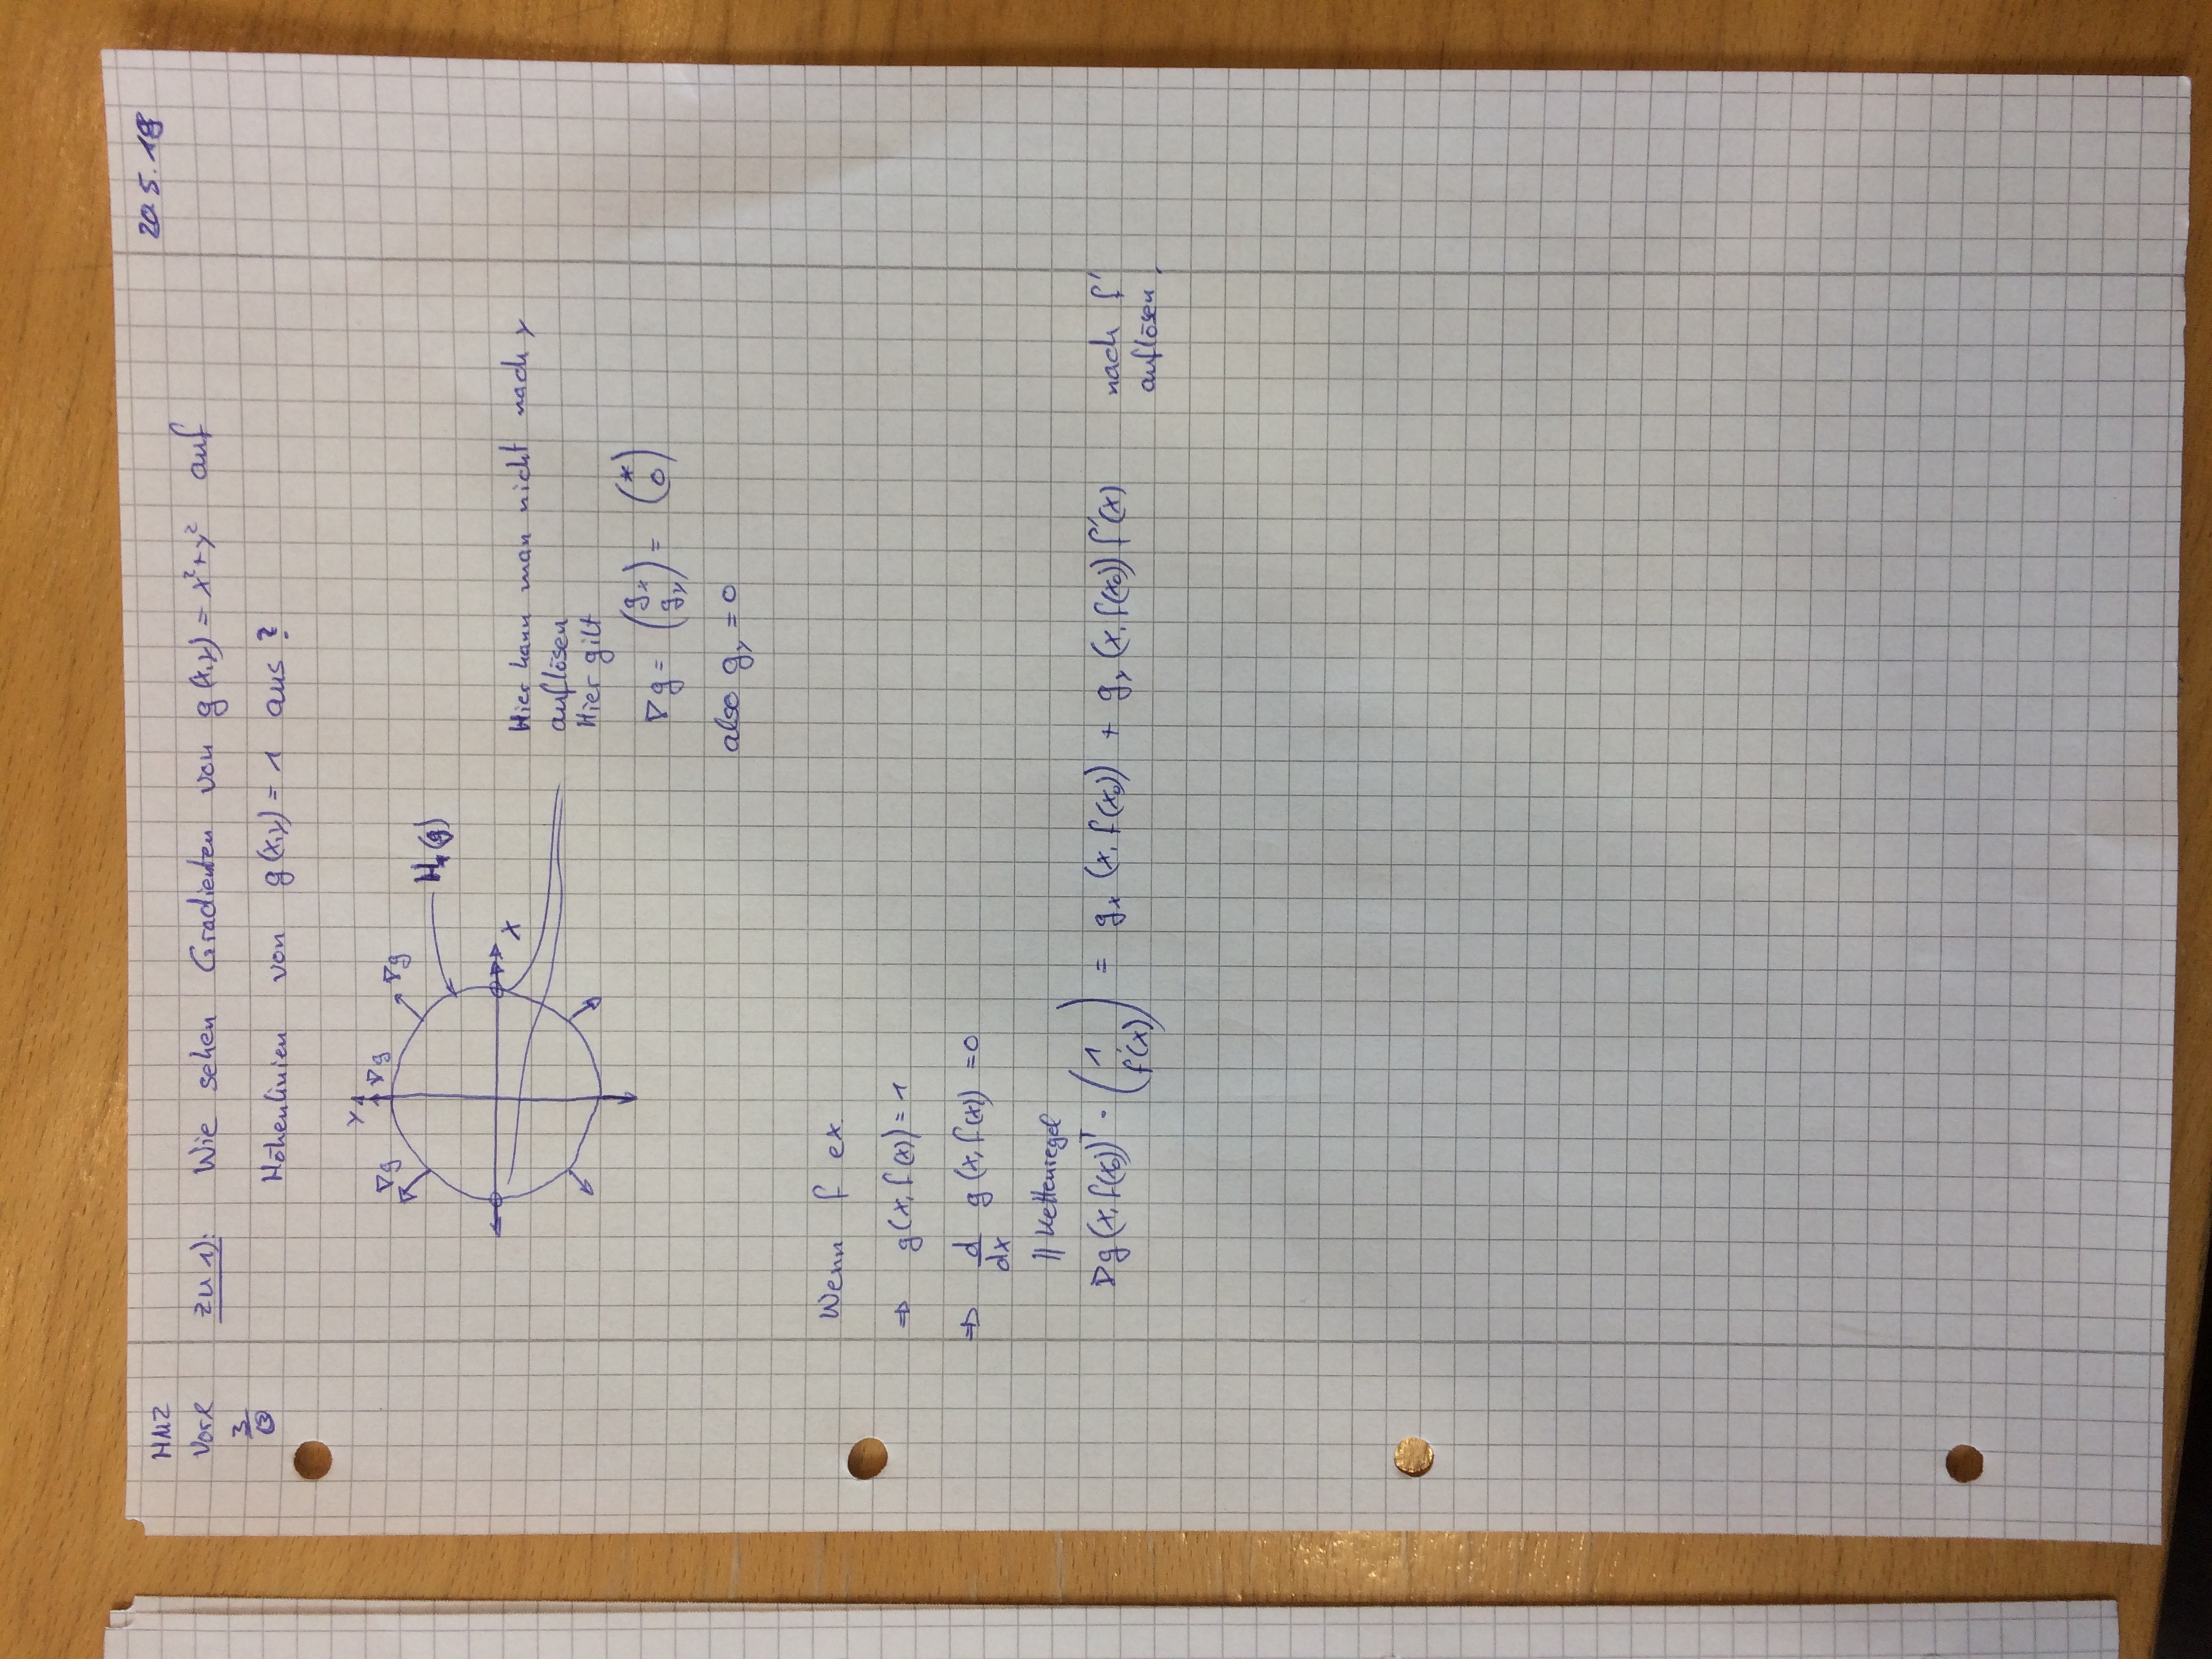 20.5.19
HM2
Vorl
3
zu 1): Wie sehen Gradienten von g(x,y) = x²+y² auf
Höhenlinien von g(x,y) = 1 aus?
y
∇g ∇g ∇g
H₁(g)
x
Hier kann man nicht nach y
auflösen
Hier gilt
∇g = (g_x g_y) = (* 0)
also g_y = 0
Wenn f ex.
⇒ g(x, f(x)) = 1
⇒ d/dx g(x, f(x)) = 0
|| Kettenregel
∇g(x, f(x₀))ᵀ · (1 f'(x)) = g_x (x, f(x₀)) + g_y (x, f(x₀)) f'(x) nach f'
auflösen.